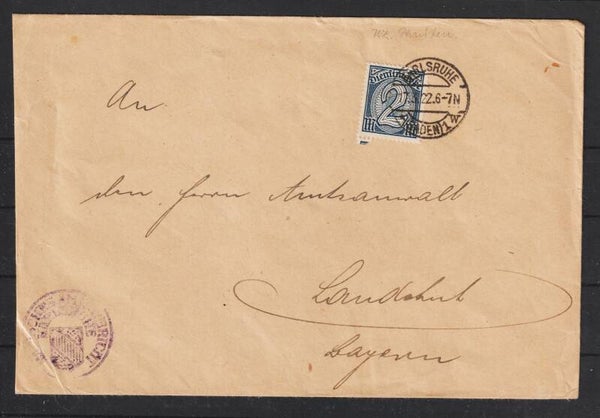 KARLSRUHE
22.6-7N
(BADEN)1
Dienstmarke
2
An
den Herrn Amtsanwalt
Landshut
Bayern